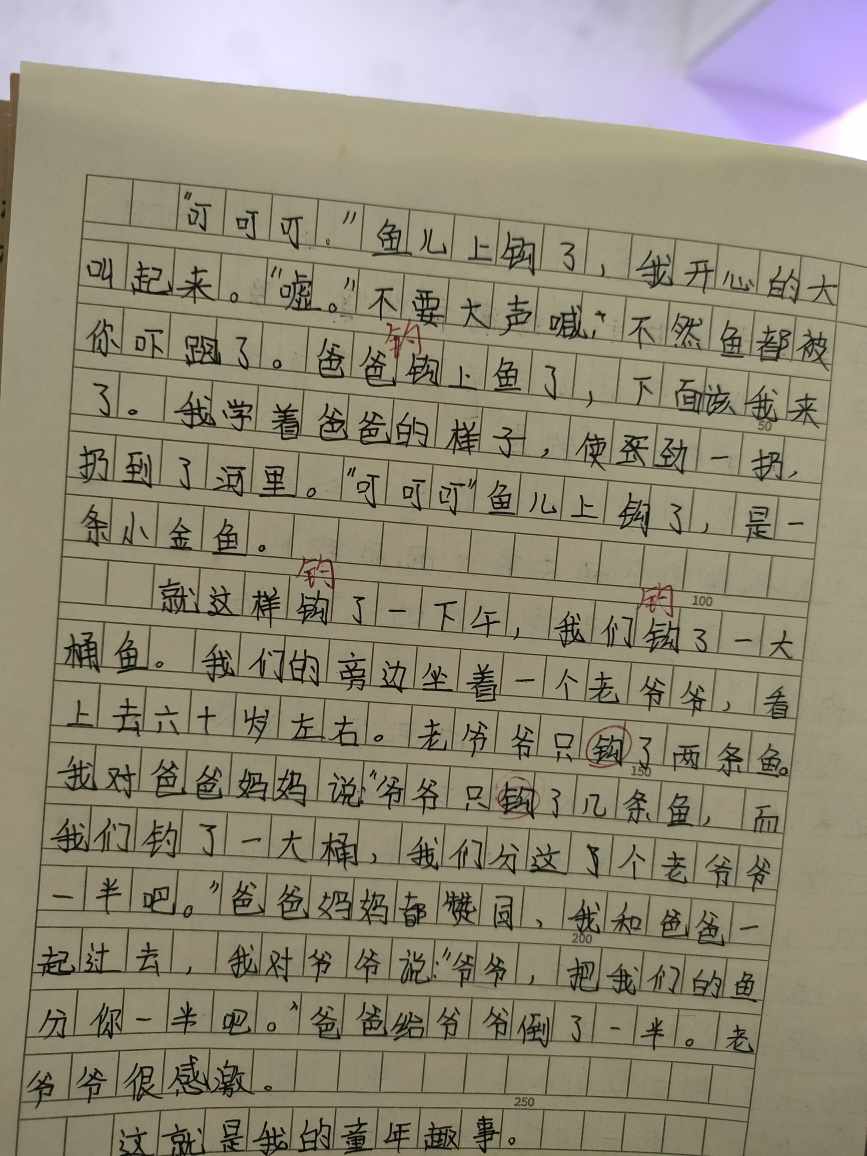 “叮叮叮。”鱼儿上钩了，我开心的大
叫起来。“嘘。”不要大声喊，不然鱼都被
钓
你吓跑了。爸爸钩上鱼了，下面该我来
50
了。我学着爸爸的样子，使劲一扔，
扔到了河里。“叮叮叮”鱼儿上钩了，是一
条小金鱼。
钓 钓
100
就这样钩了一下午，我们钩了一大
桶鱼。我们的旁边坐着一个老爷爷，看
上去六十岁左右。老爷爷只钩了两条鱼。
150
我对爸爸妈妈说：“爷爷只钩了几条鱼，而
我们钓了一大桶，我们分这了个老爷爷
一半吧。”爸爸妈妈都赞同，我和爸爸一
200
起过去，我对爷爷说：“爷爷，把我们的鱼
分你一半吧。”爸爸给爷爷倒了一半。老
爷爷很感激。
250
这就是我的童年趣事。